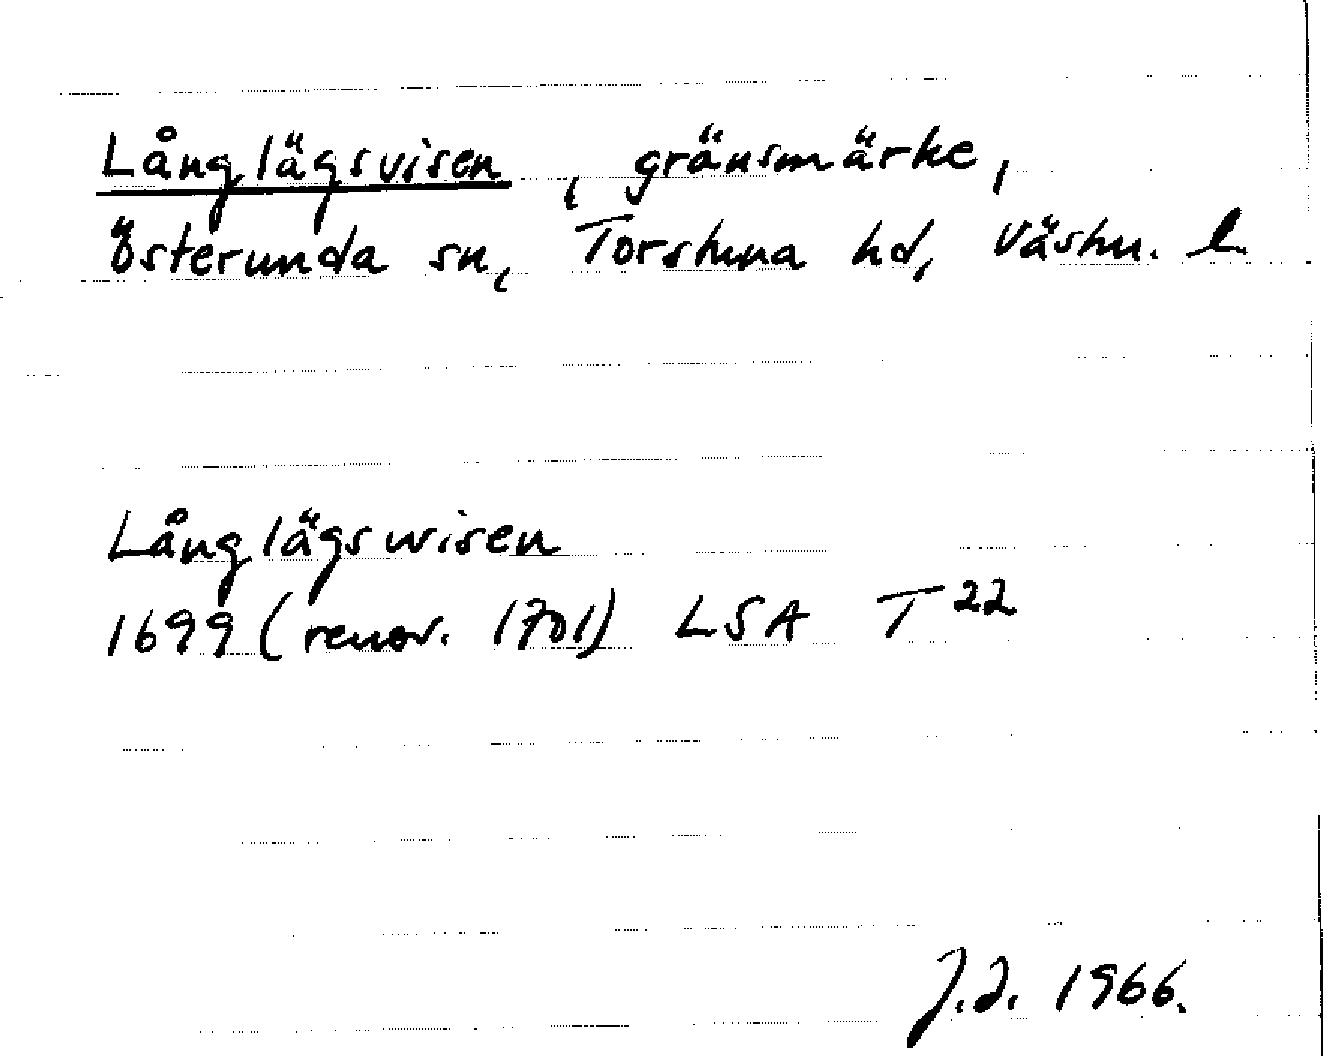 Långlägsvisen, gränsmärke,
Österunda sn, Torstuna hd, Västm. l.
Långlägswisen
1699 (renov. 1701) LSA T 22
J.I. 1966.